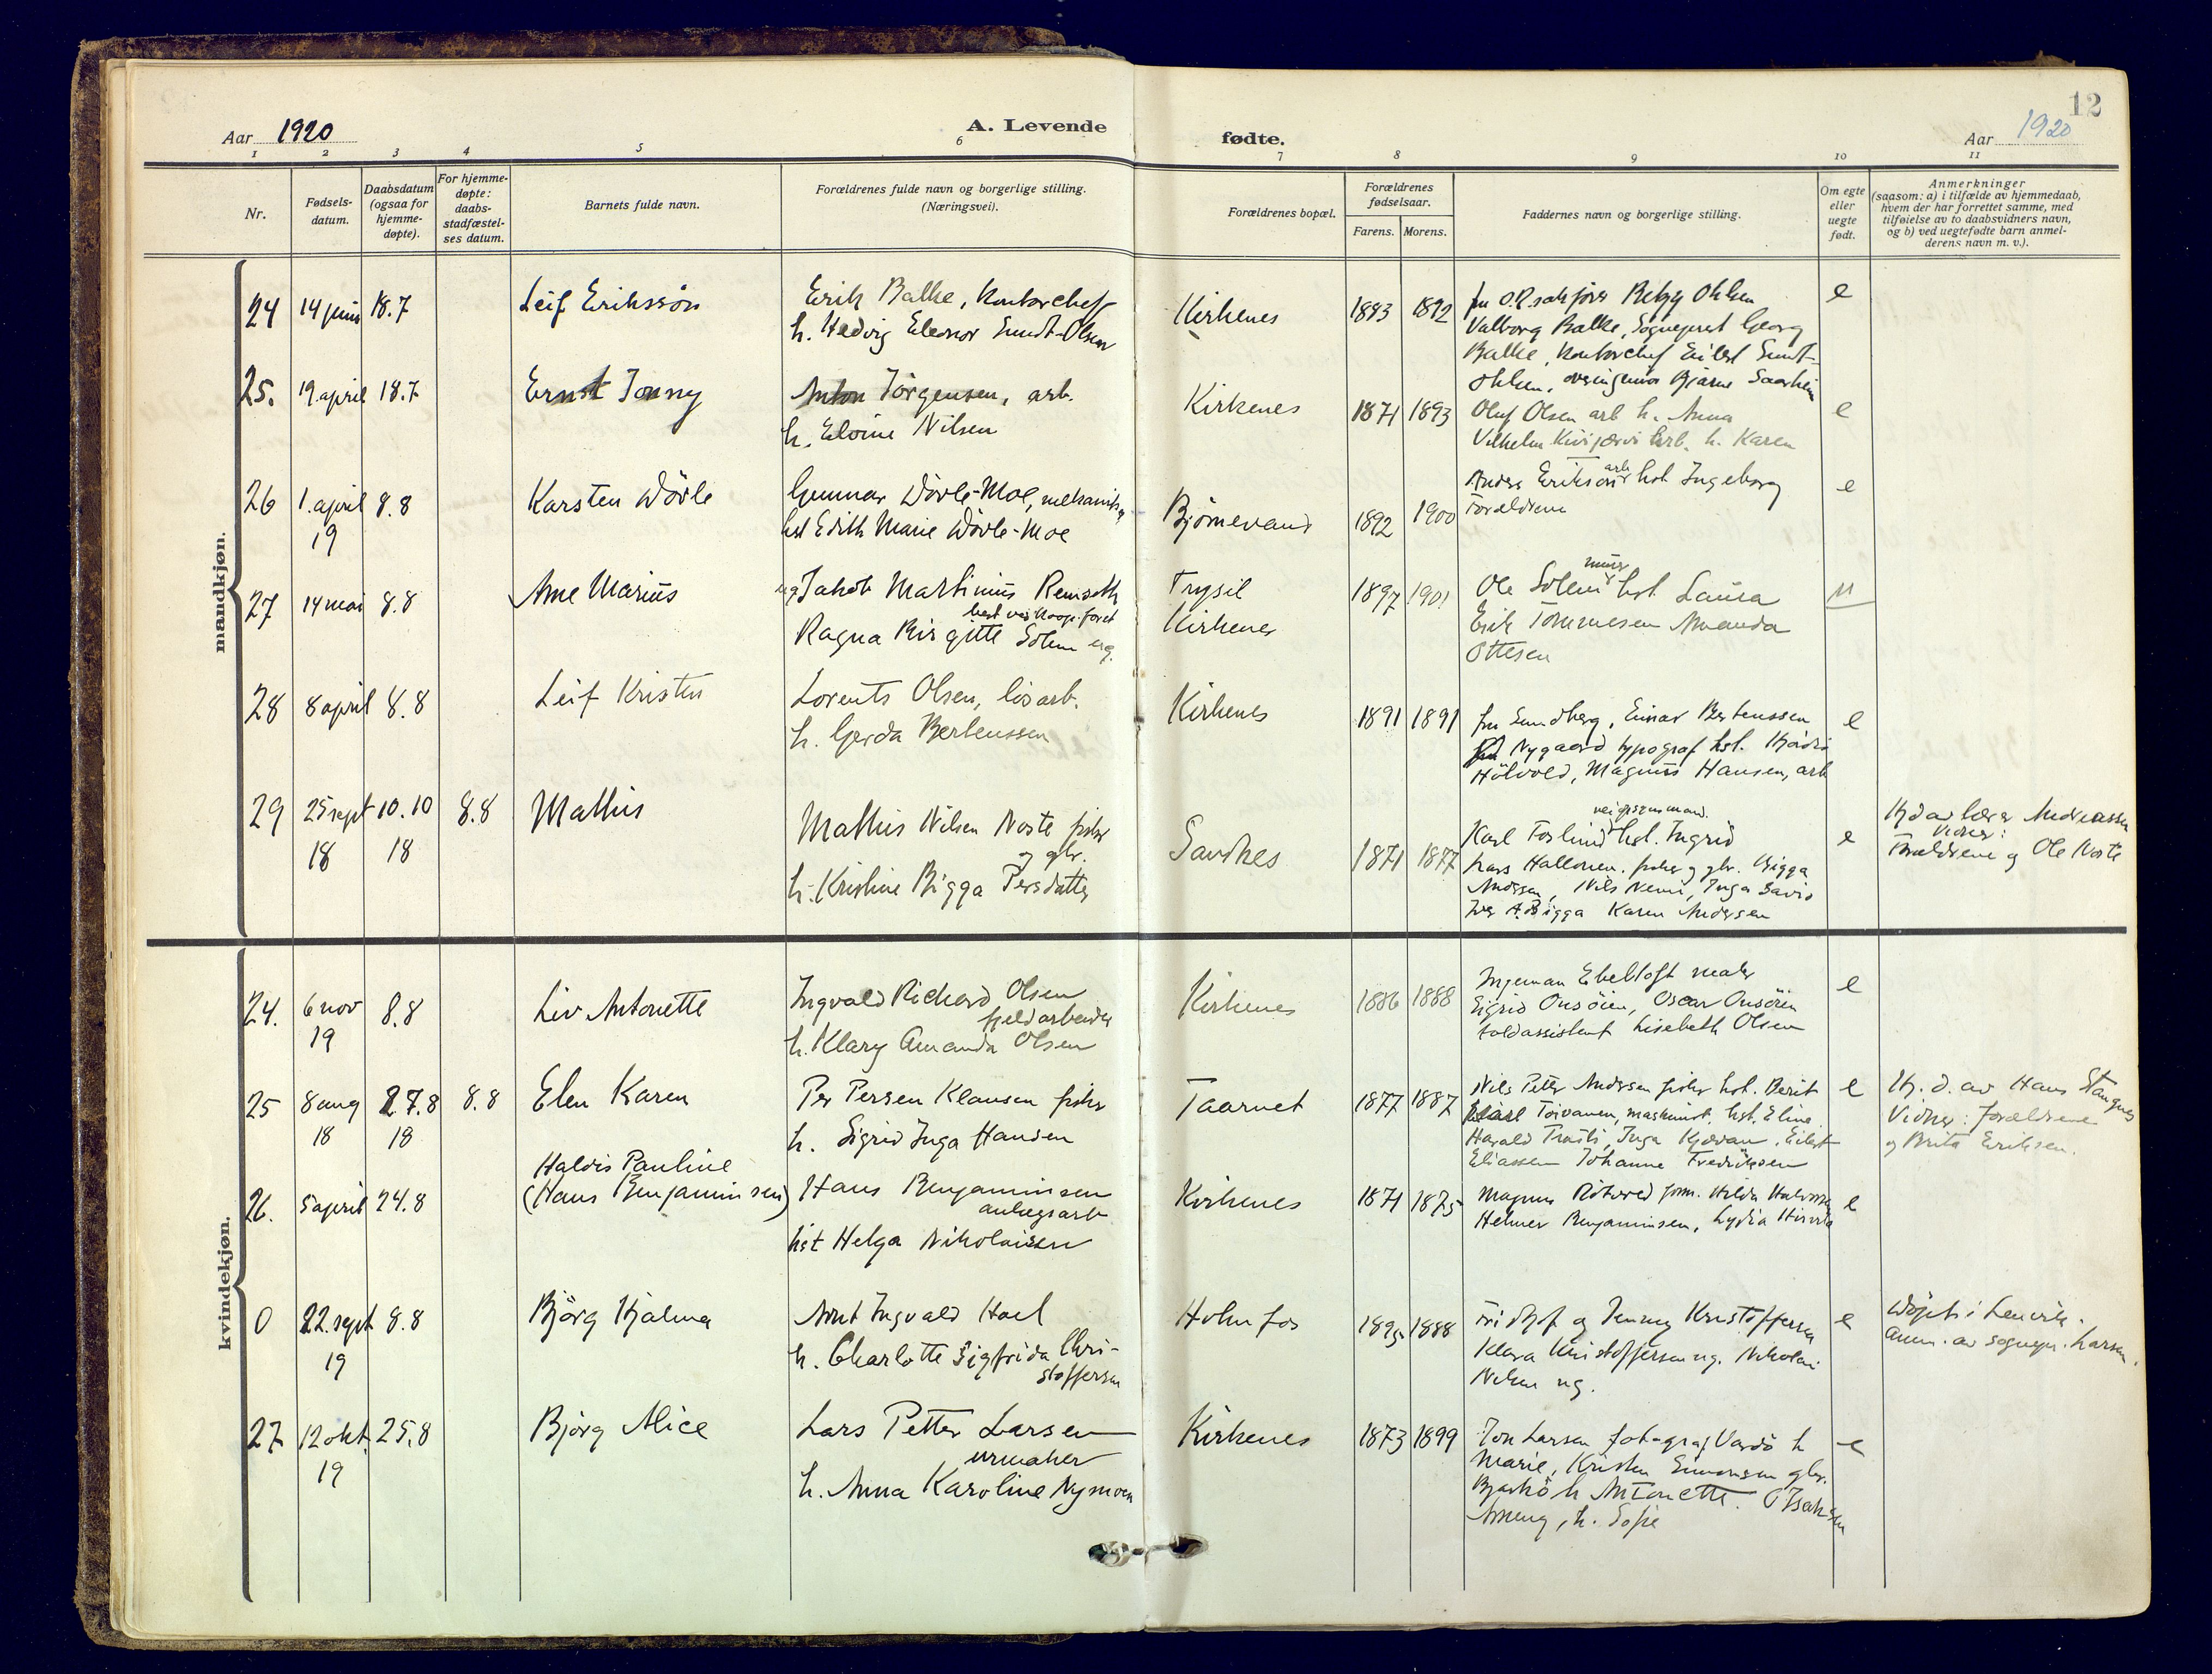 12
Aar 1920
A. Levende
fødte.
Aar 1920
1 2 3 4 5 6 7 8 9 10 11
Nr.
Fødsels-
datum.
Daabsdatum
(ogsaa for
hjemme-
døpte).
For hjemme-
døpte:
daabs-
stadfæstel-
ses datum.
Barnets fulde navn.
Forældrenes fulde navn og borgerlige stilling.
(Næringsvei).
Forældrenes bopæl.
Forældrenes
fødselsaar.
Farens. Morens.
Faddernes navn og borgerlige stilling.
Om egte
eller
uegte
født.
Anmerkninger
(saasom: a) i tilfælde av hjemmedaab,
hvem der har forrettet samme, med
tilføielse av to daabsvidners navn,
og b) ved uegtefødte barn anmel-
derens navn m. v.).
mandkjøn.
24 14 juni 18.7 Leif Erikssøn
Erik Balke, kontorchef
h. Hedvig Eleonor Sundt-Olsen
Kirkenes 1883 1892
fru O.R.sakfører Betzy Ohlsen
Valborg Balke, Sogneprest Georg
Balke, kontorchef Eilert Sundt-
Ohlsen, overingeniør Bjarne
e
25. 19. april 18.7 Ernst Jonny
Anton Jörgensen, arb.
h. Nilsen
Kirkenes 1871 1893
Oluf Olsen arb h. Anna
Vilhelm Kivijærvi arb. h. Karen
e
26 1. april 8.8
19
Karsten Dövle
Gunnar Dövle-Moe,
hst Edith Marie Dövle-Moe
Bjørnevand 1892 1900
Anders Erikson arb hst Ingeborg
Forældrene
e
27 14 mai 8.8 Arne Marius
ug Jakob Martinus Remseth
Ragna Birgitte Solem ug.
Trysil
Kirkenes
1897 1901
Ole Solem murer hst Laura
Erik Tommesen Amanda
Ottesen
u
28 8 april 8.8 Leif Kristen
Lorents Olsen, lösarb.
h. Gerda Bertenssen
Kirkenes 1891 1891
fru Sundberg, Einar Bertenssen
Nygaard typograf hst.
Hölvold, Magnus Hansen, arb
e
29 25 sept 10.10 8.8
18 18
Mathis
Mathis Nilsen Noste fisker
og gbr.
h. Kristine Bigga Persdatter
Sandnes 1871 1877
Karl Forslund hst. Ingrid
Lars Hallonen. fisker og gbr. Bigga
Andersen, Nils Nemi, Inga Savio
Bigga Karen Andersen
e
Hjd av lærer Andreassen
Vidner:
Forældrene og Ole Noste
kvindekjøn.
24. 6 nov 8.8
19
Liv Antonette
Ingvald Richard Olsen
fjeldarbeider
h. Klary Amanda Olsen
Kirkenes 1886 1888
Ingeman Ebeltoft maler
Sigrid Onsöien, Oscar Onsöien
toldassistent Lisebeth Olsen
e
25 8 aug 27.8 8.8
18 18
Elen Karen
Per Persen Klausen fisker
h. Sigrid Inga Hansen
Taarnet 1877 1887
Nils Peter Andersen fisker hst. Berit
Toivanen, maskinist, hst. Eline
Harald Trasti, Inga Kjærran, Eilert
Eliassen Johanne Fredriksen
e
Hj. d. av Hans Stangnes
Vidner: forældrene
og Brita Eriksen.
26. 5 april 24.8
Haldis Pauline
(Hans Benjaminsen)
Hans Benjaminsen
anlegsarb
hst Helga Nikolaisen
Kirkenes 1871 1875
Magnus form. Hilda Halvorsen
Helmer Benjaminsen, Lydia
e
0 22. sept 8.8
19
Björg Hjalma
Arnt Ingvald Hoel
h. Charlotte Sigfrida Chri-
stoffersen
Holmfos 1895 1888
Fridtjof og Jenny Kristoffersen
Klara Kristoffersen ug. Nikolai
Nilsen ug.
e
Döpt i Lenvik.
Anm. av sognepr. Larsen.
27 12 okt. 25.8
19
Bjørg Alice
Lars Petter Larsen
urmaker
h. Anna Karoline Nymoen
Kirkenes 1873 1899
Jon Larsen fotograf Vardö h
Marie, Kristen Simonsen gbr.
Bjarkö h Antonette. O Isaksen
h. Sofie
e